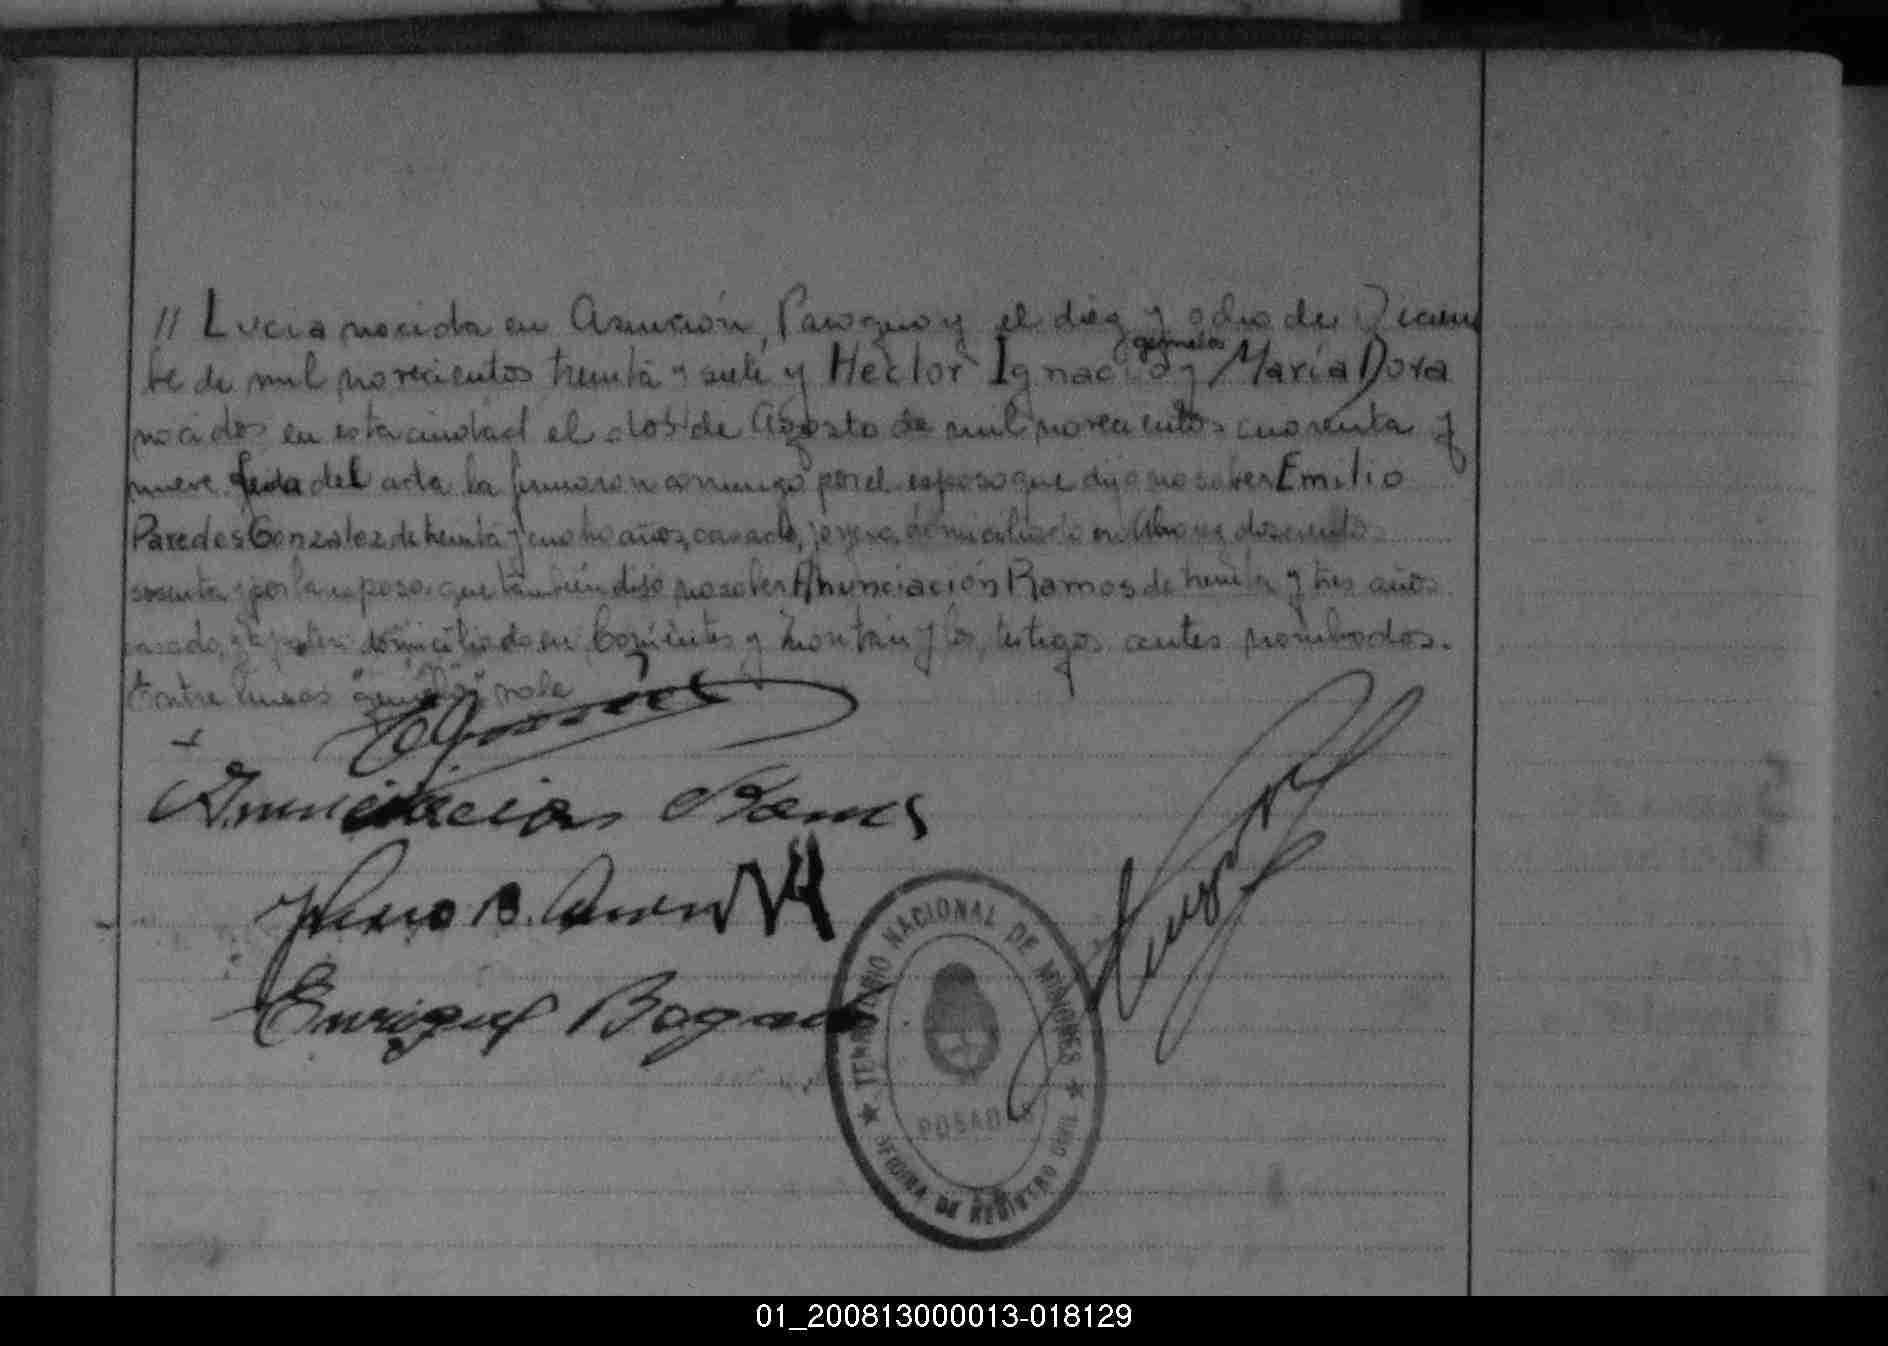 // Lucia nacida en Asunción, Paraguay el diez y ocho de Diciem
bre de mil novecientos treinta y siete y Hector Ignacio y María Dora
gemelos
nacidos en esta ciudad el dos de Agosto de mil novecientos cuarenta y
nueve. Leida del acta la firmaron conmigo por el esposo que dijo no saber Emilio
Paredes Gonzalez de treinta y cuatro años, casado, domiciliado en doscientos
sesenta y por la esposa que también dijo no saber Anunciación Ramos de treinta y tres años
casado, domiciliado en Corrientes y y los testigos antes nombrados.
Entre lineas "gemelos" vale
Anunciacion Ramos
B.
Enrique Bogado
TERRITORIO NACIONAL DE MISIONES
POSADAS
OFICINA DE REGISTRO CIVIL
01_200813000013-018129